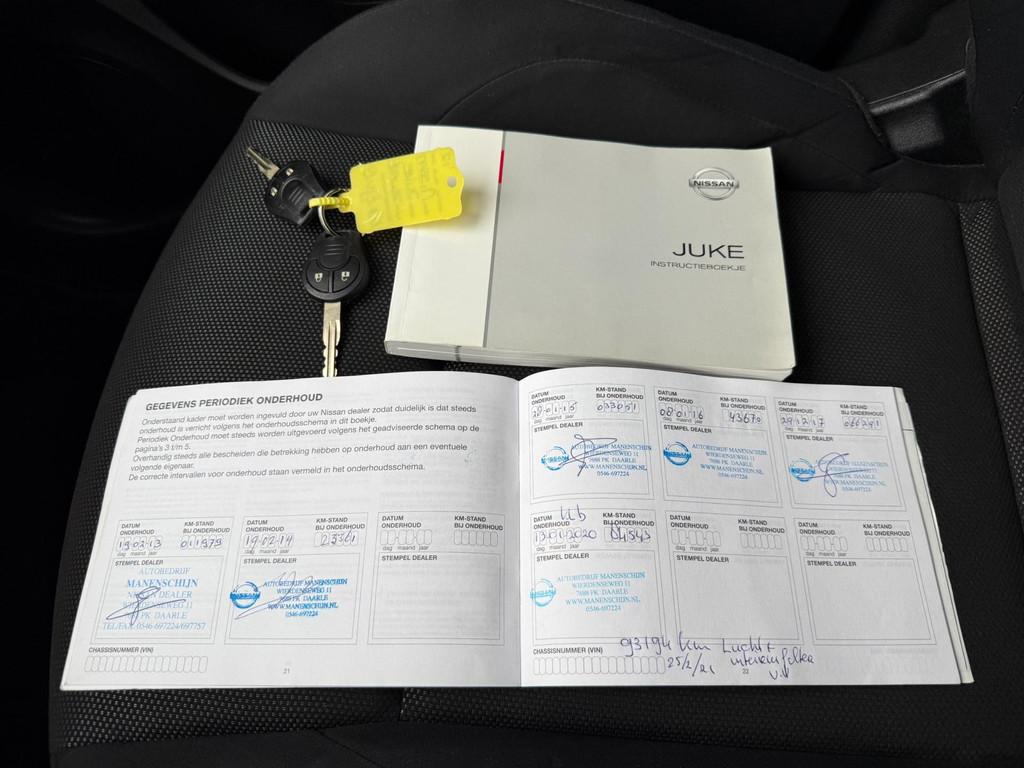 NISSAN
JUKE
INSTRUCTIEBOEKJE
GEGEVENS PERIODIEK ONDERHOUD
Onderstaand kader moet worden ingevuld door uw Nissan dealer zodat duidelijk is dat steeds
onderhoud is verricht volgens het onderhoudsschema in dit boekje.
Periodiek Onderhoud moet steeds worden uitgevoerd volgens het geadviseerde schema op de
pagina's 3 t/m 5.
Overhandig steeds alle bescheiden die betrekking hebben op onderhoud aan een eventuele
volgende eigenaar.
De correcte intervallen voor onderhoud staan vermeld in het onderhoudsschema.
DATUM ONDERHOUD KM-STAND BIJ ONDERHOUD
19-02-13 011979
dag maand jaar
STEMPEL DEALER
AUTOBEDRIJF
MANENSCHIJN
NISSAN DEALER
WIERDENSEWEG 11
7688 PK DAARLE
TEL/FAX 0546-697224/697757
DATUM ONDERHOUD KM-STAND BIJ ONDERHOUD
19-02-14 23361
dag maand jaar
STEMPEL DEALER
NISSAN
AUTOBEDRIJF MANENSCHIJN
WIERDENSEWEG 11
7688 PK DAARLE
WWW.MANENSCHIJN.NL
0546-697224
DATUM ONDERHOUD KM-STAND BIJ ONDERHOUD
dag maand jaar
STEMPEL DEALER
CHASSISNUMMER (VIN)
21
DATUM ONDERHOUD KM-STAND BIJ ONDERHOUD
28-01-15 033051
dag maand jaar
STEMPEL DEALER
NISSAN
AUTOBEDRIJF MANENSCHIJN
WIERDENSEWEG 11
7688 PK DAARLE
WWW.MANENSCHIJN.NL
0546-697224
DATUM ONDERHOUD KM-STAND BIJ ONDERHOUD
08-01-16 43670
dag maand jaar
STEMPEL DEALER
NISSAN
AUTOBEDRIJF MANENSCHIJN
WIERDENSEWEG 11
7688 PK DAARLE
WWW.MANENSCHIJN.NL
0546-697224
DATUM ONDERHOUD KM-STAND BIJ ONDERHOUD
29-12-17 066291
dag maand jaar
STEMPEL DEALER
NISSAN
AUTOBEDRIJF MANENSCHIJN
WIERDENSEWEG 11
7688 PK DAARLE
WWW.MANENSCHIJN.NL
0546-697224
DATUM ONDERHOUD KM-STAND BIJ ONDERHOUD
13-01-2020 84543
dag maand jaar
STEMPEL DEALER
NISSAN
AUTOBEDRIJF MANENSCHIJN
WIERDENSEWEG 11
7688 PK DAARLE
WWW.MANENSCHIJN.NL
0546-697224
DATUM ONDERHOUD KM-STAND BIJ ONDERHOUD
dag maand jaar
STEMPEL DEALER
DATUM ONDERHOUD KM-STAND BIJ ONDERHOUD
dag maand jaar
STEMPEL DEALER
93194 km Lucht +
25/2/21 interieurfilter
CHASSISNUMMER (VIN)
22